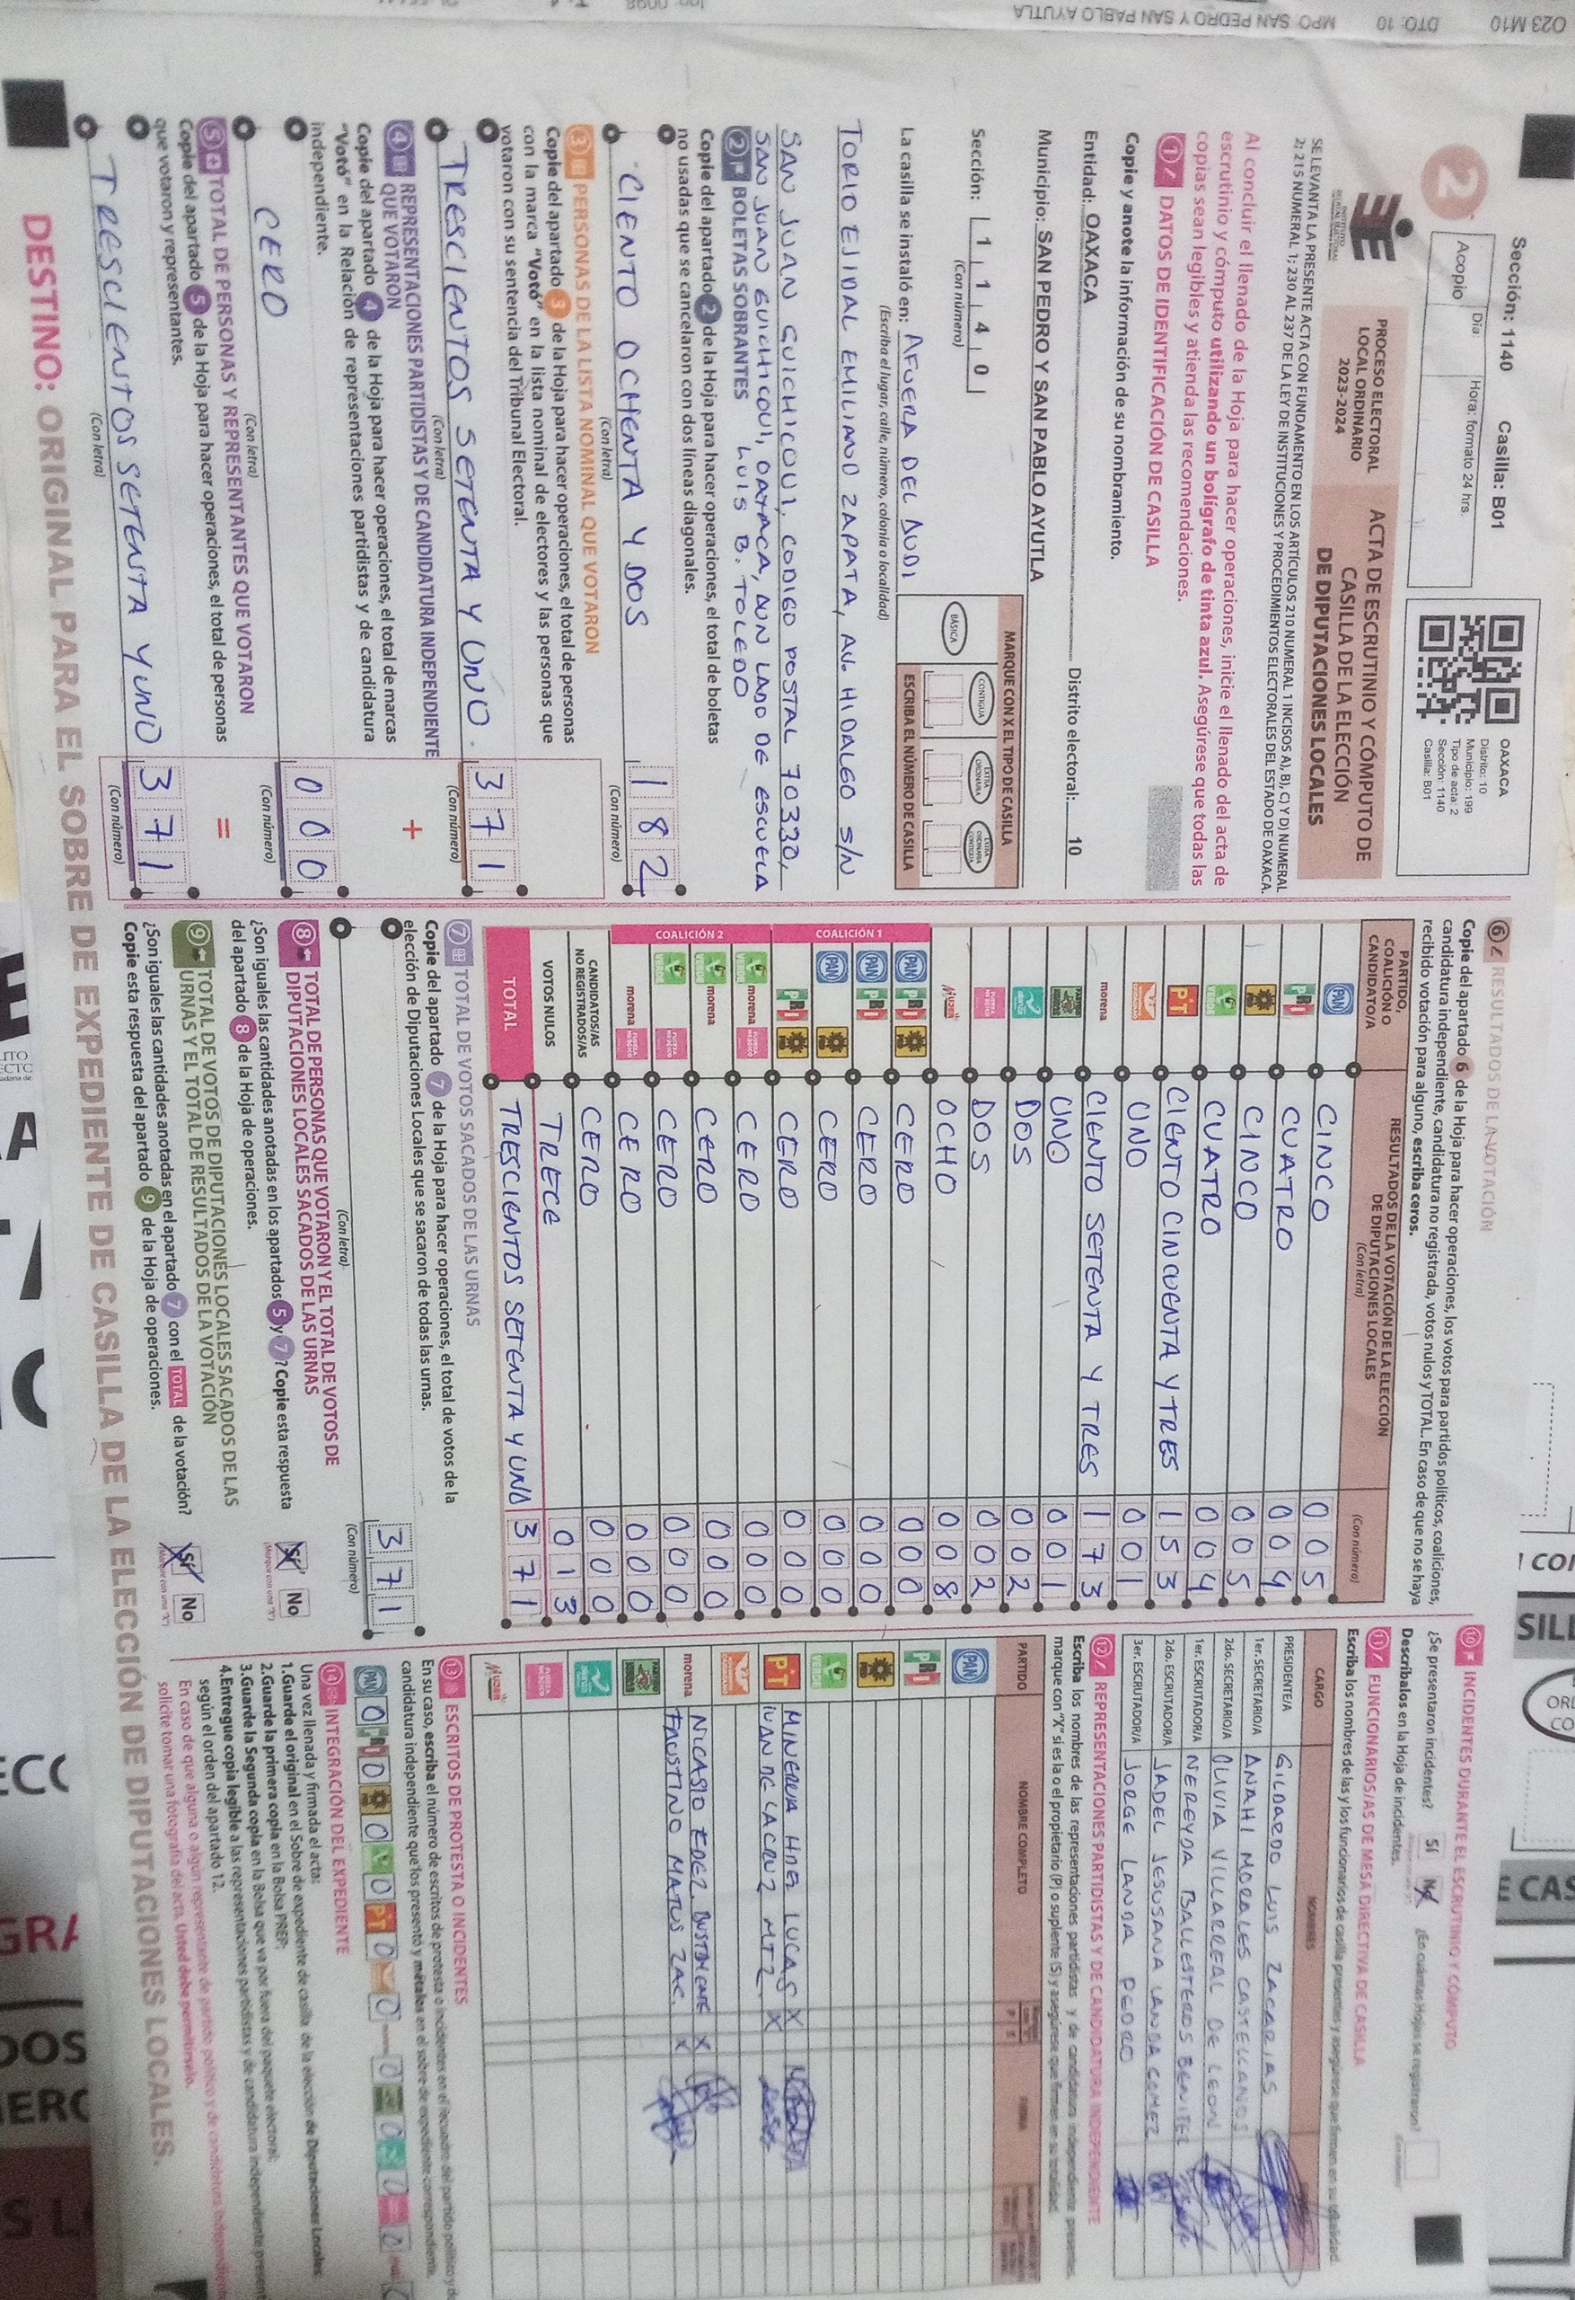 O23 M10 DTO: 10 MPO: SAN PEDRO Y SAN PABLO AYUTLA
Sección: 1140 Casilla: B01
Acopio Día: Hora: formato 24 hrs.
2
PROCESO ELECTORAL
LOCAL ORDINARIO
2023-2024
ACTA DE ESCRUTINIO Y CÓMPUTO DE
CASILLA DE LA ELECCIÓN
DE DIPUTACIONES LOCALES
OAXACA
Distrito: 10
Municipio: 199
Tipo de acta: 2
Sección: 1140
Casilla: B01
SE LEVANTA LA PRESENTE ACTA CON FUNDAMENTO EN LOS ARTÍCULOS 210 NUMERAL 1 INCISOS A), B), C) Y D) NUMERAL
2; 215 NUMERAL 1; 230 AL 237 DE LA LEY DE INSTITUCIONES Y PROCEDIMIENTOS ELECTORALES DEL ESTADO DE OAXACA.
Al concluir el llenado de la Hoja para hacer operaciones, inicie el llenado del acta de
escrutinio y cómputo utilizando un bolígrafo de tinta azul. Asegúrese que todas las
copias sean legibles y atienda las recomendaciones.
1 DATOS DE IDENTIFICACIÓN DE CASILLA
Copie y anote la información de su nombramiento.
Entidad: OAXACA Distrito electoral: 10
Municipio: SAN PEDRO Y SAN PABLO AYUTLA
Sección: 1 1 4 0
(Con número)
MARQUE CON X EL TIPO DE CASILLA
BÁSICA CONTIGUA EXTRAORDINARIA EXTRAORDINARIA CONTIGUA
ESCRIBA EL NÚMERO DE CASILLA
La casilla se instaló en: AFUERA DEL AUDI
(Escriba el lugar, calle, número, colonia o localidad)
TORIO EJIDAL EMILIANO ZAPATA, AV. HIDALGO S/N
SAN JUAN GUICHICOVI, CODIGO POSTAL 70330,
SAN JUAN GUICHICOVI, OAXACA, AUN LADO DE ESCUELA
LUIS B. TOLEDO
2 BOLETAS SOBRANTES
Copie del apartado 2 de la Hoja para hacer operaciones, el total de boletas
no usadas que se cancelaron con dos líneas diagonales.
CIENTO OCHENTA Y DOS 1 8 2
(Con letra) (Con número)
3 PERSONAS DE LA LISTA NOMINAL QUE VOTARON
Copie del apartado 3 de la Hoja para hacer operaciones, el total de personas
con la marca "Votó" en la lista nominal de electores y las personas que
votaron con su sentencia del Tribunal Electoral.
TRESCIENTOS SETENTA Y UNO. 3 7 1
(Con letra) (Con número)
4 REPRESENTACIONES PARTIDISTAS Y DE CANDIDATURA INDEPENDIENTE
QUE VOTARON
Copie del apartado 4 de la Hoja para hacer operaciones, el total de marcas
"Votó" en la Relación de representaciones partidistas y de candidatura
independiente.
+
CERO 0 0 0
(Con letra) (Con número)
5 TOTAL DE PERSONAS Y REPRESENTANTES QUE VOTARON
Copie del apartado 5 de la Hoja para hacer operaciones, el total de personas
que votaron y representantes.
=
TRESCIENTOS SETENTA Y UNO 3 7 1
(Con letra) (Con número)
6 RESULTADOS DE LA VOTACIÓN
Copie del apartado 6 de la Hoja para hacer operaciones, los votos para partidos políticos, coaliciones,
candidatura independiente, candidatura no registrada, votos nulos y TOTAL. En caso de que no se haya
recibido votación para alguno, escriba ceros.
PARTIDO,
COALICIÓN O
CANDIDATO/A
RESULTADOS DE LA VOTACIÓN DE LA ELECCIÓN
DE DIPUTACIONES LOCALES
(Con letra)
(Con número)
PAN CINCO 0 0 5
PRI CUATRO 0 0 4
PRD CINCO 0 0 5
VERDE CUATRO 0 0 4
PT CIENTO CINCUENTA Y TRES 1 5 3
UNO 0 0 1
morena CIENTO SETENTA Y TRES 1 7 3
UNO 0 0 1
DOS 0 0 2
DOS 0 0 2
MUJER OCHO 0 0 8
COALICIÓN 1
PAN PRI PRD CERO 0 0 0
PAN PRI CERO 0 0 0
PAN PRD CERO 0 0 0
PRI PRD CERO 0 0 0
COALICIÓN 2
VERDE morena FUERZA CERO 0 0 0
VERDE morena CERO 0 0 0
VERDE FUERZA CERO 0 0 0
morena FUERZA CERO 0 0 0
CANDIDATOS/AS
NO REGISTRADOS/AS CERO 0 0 0
VOTOS NULOS TRECE 0 1 3
TOTAL TRESCIENTOS SETENTA Y UNO 3 7 1
7 TOTAL DE VOTOS SACADOS DE LAS URNAS
Copie del apartado 7 de la Hoja para hacer operaciones, el total de votos de la
elección de Diputaciones Locales que se sacaron de todas las urnas.
3 7 1
(Con letra) (Con número)
8 TOTAL DE PERSONAS QUE VOTARON Y EL TOTAL DE VOTOS DE
DIPUTACIONES LOCALES SACADOS DE LAS URNAS
¿Son iguales las cantidades anotadas en los apartados 5 y 7? Copie esta respuesta
del apartado 8 de la Hoja de operaciones.
Sí No
9 TOTAL DE VOTOS DE DIPUTACIONES LOCALES SACADOS DE LAS
URNAS Y EL TOTAL DE RESULTADOS DE LA VOTACIÓN
¿Son iguales las cantidades anotadas en el apartado 7 con el TOTAL de la votación?
Copie esta respuesta del apartado 9 de la Hoja de operaciones.
Sí No
10 INCIDENTES DURANTE EL ESCRUTINIO Y CÓMPUTO
¿Se presentaron incidentes? Sí No ¿En cuántas Hojas se registraron?
Descríbalos en la Hoja de incidentes.
11 FUNCIONARIOS/AS DE MESA DIRECTIVA DE CASILLA
Escriba los nombres de las y los funcionarios de casilla presentes y asegúrese que firmen en su totalidad.
CARGO NOMBRES
PRESIDENTE/A GILDARDO LUIS ZACARIAS
1er. SECRETARIO/A ANAHI MORALES CASTELLANOS
2do. SECRETARIO/A OLIVIA VILLARREAL DE LEON
1er. ESCRUTADOR/A NEREYDA BALLESTEROS BENITEZ
2do. ESCRUTADOR/A JADEL SUSANA LANDA GOMEZ
3er. ESCRUTADOR/A JORGE LANDA PEDRO
12 REPRESENTACIONES PARTIDISTAS Y DE CANDIDATURA INDEPENDIENTE
Escriba los nombres de las representaciones partidistas y de candidatura independiente presentes,
marque con "X" si es la o el propietario (P) o suplente (S) y asegúrese que firmen en su totalidad.
PARTIDO NOMBRE COMPLETO
PAN
PRI
PRD
VERDE
PT MINERVA HDZ LUCAS X
IVAN DE LA CRUZ MTZ. X
morena NICASIO FDEZ. BUSTAMANTE X
FAUSTINO MATUS ZAC. X
MUJER
13 ESCRITOS DE PROTESTA O INCIDENTES
En su caso, escriba el número de escritos de protesta o incidentes en el recuadro del partido político y de
candidatura independiente que los presentó y métalos en el sobre de expediente correspondiente.
PAN 0 PRI 0 PRD 0 VERDE 0 PT 0 0 morena 0 0 0 0
14 INTEGRACIÓN DEL EXPEDIENTE
Una vez llenada y firmada el acta:
1.Guarde el original en el Sobre de expediente de casilla de la elección de Diputaciones Locales;
2.Guarde la primera copia en la Bolsa PREP;
3.Guarde la Segunda copia en la Bolsa que va por fuera del paquete electoral;
4.Entregue copia legible a las representaciones partidistas y de candidatura independiente presentes
según el orden del apartado 12.
En caso de que alguna o algún representante de partido político y de candidatura independiente
solicite tomar una fotografía del acta, Usted debe permitírselo.
DESTINO: ORIGINAL PARA EL SOBRE DE EXPEDIENTE DE CASILLA DE LA ELECCIÓN DE DIPUTACIONES LOCALES.